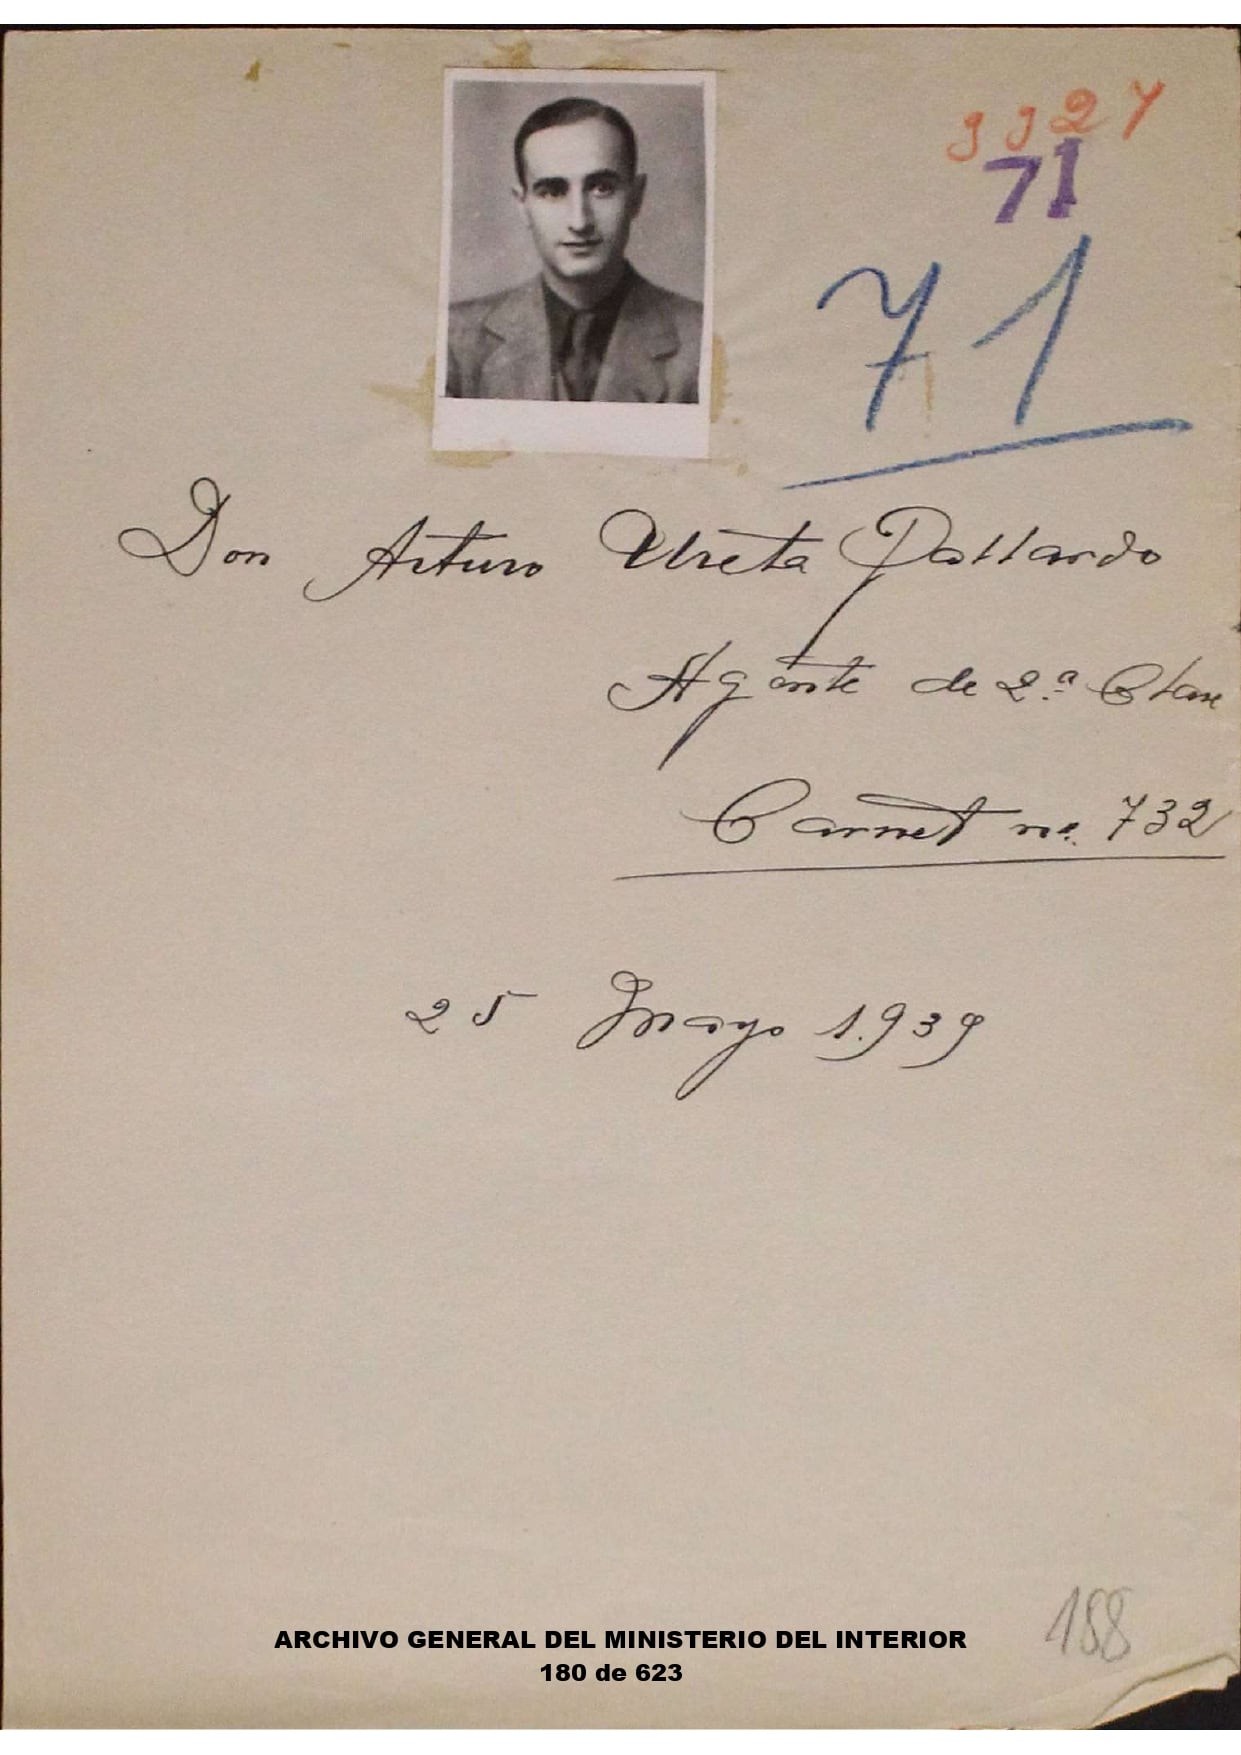 3327
71
71
Don Arturo Ureta Pallardo
Agente de 2.ª Clase
Carnet nº. 732
25 Mayo 1.939
188
ARCHIVO GENERAL DEL MINISTERIO DEL INTERIOR
180 de 623